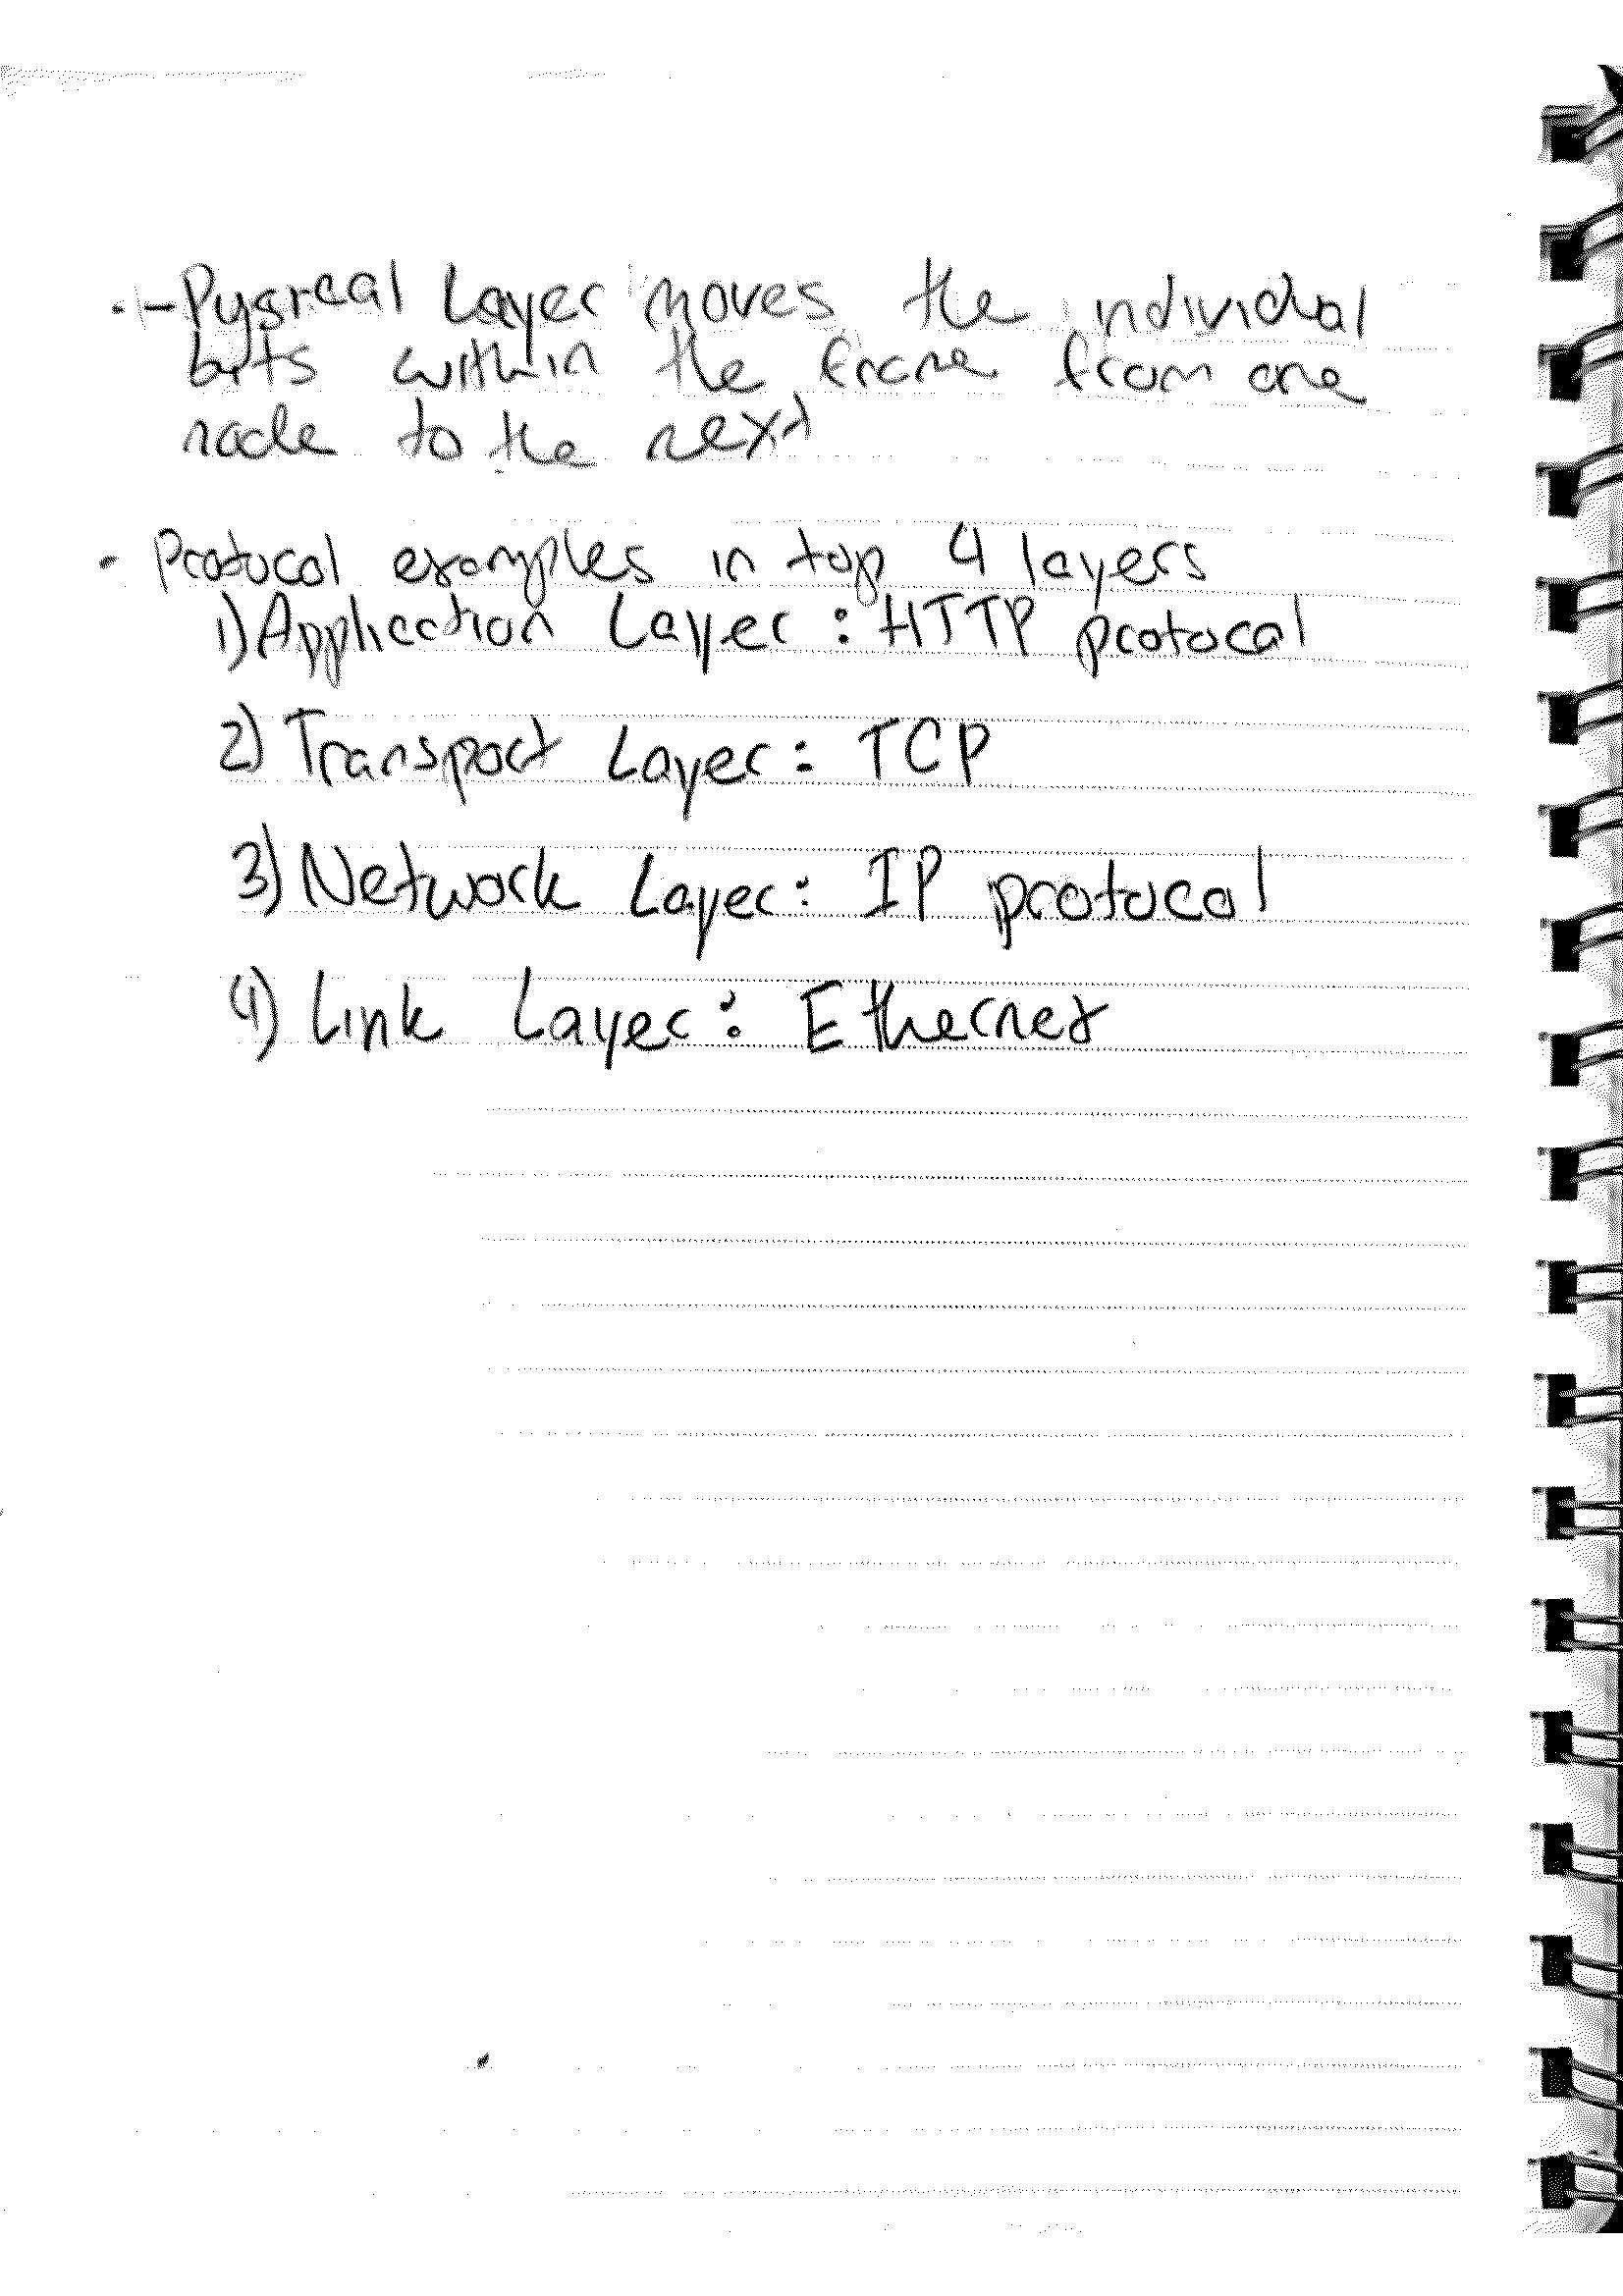 ·-Pysical Layer moves the individual
bits within the frame from one
node to the next
· Protocol examples in top 4 layers
1) Application Layer : HTTP protocal
2) Transport Layer : TCP
3) Network Layer : IP protocol
4) Link Layer : Ethernet